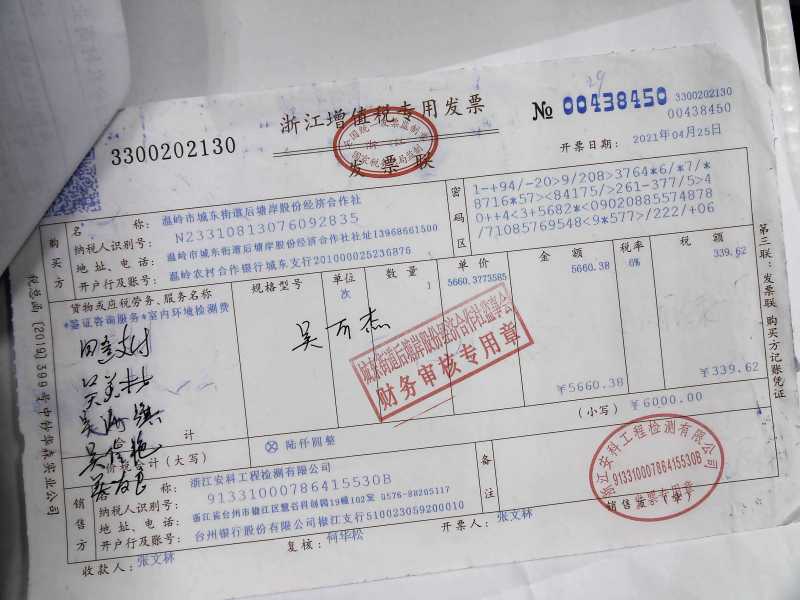 29
3300202130
浙江增值税专用发票
发票联
№ 00438450
3300202130
00438450
开票日期: 2021年04月25日
购买方
名 称: 温岭市城东街道后塘岸股份经济合作社
纳税人识别号: N2331081307609 2835
地址、电话: 温岭市城东街道后塘岸股份经济合作社社址13968661500
开户行及账号: 温岭农村合作银行城东支行201000025236876
密码区
1-+94/-20>9/208>3764*6/*7/*
8716*57><84175/>261-377/5>4
0++4<3+5682*<09020885574878
/71085769548<9*577>/222/+06
货物或应税劳务、服务名称 规格型号 单位 数量 单价 金额 税率 税额
*鉴证咨询服务*室内环境检测费 次 1 5660.3773585 5660.38 6% 339.62
吴万杰
城东街道后塘岸股份经济合作社监事会
财务审核专用章
计 ￥5660.38 ￥339.62
价税合计(大写) ⊗ 陆仟圆整 (小写) ￥6000.00
销售方
名 称: 浙江安科工程检测有限公司
纳税人识别号: 91331000786415530B
地址、电话: 浙江省台州市椒江区慧谷科创园19幢102室 0576-88205117
开户行及账号: 台州银行股份有限公司椒江支行510023059200010
备注
浙江安科工程检测有限公司
91331000786415530B
发票专用章
收款人: 张文林 复核: 何华松 开票人: 张文林 销售方:(章)
税总函〔2019〕399号中钞华森实业公司
第三联:发票联 购买方记账凭证